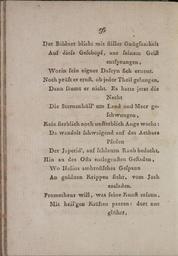 56
Der Bildner blickt mit stiller Gnügsamkeit
Auf dieses Geschöpf, aus seinem Geist
entsprungen,
Worin sein eignes Daseyn sich erneut.
Noch prüft er ernst, ob jeder Theil gelungen,
Dann säumt er nicht. Es hatte jetzt die
Nacht
Die Sternenhüll' um Land und Meer ge-
schwungen,
Kein sterblich noch unsterblich Auge wacht:
Da wandelt schweigend auf des Aethers
Pfaden
Der Japetid', auf schlauen Raub bedacht,
Hin an des Osts entlegensten Gestaden,
Wo Helios ambrosisches Gespann
An goldnen Krippen steht, vom Joch
entladen.
Prometheus will, was seine Kunst ersann,
Mit heil'gen Kräften paaren: dort nur
glühet,